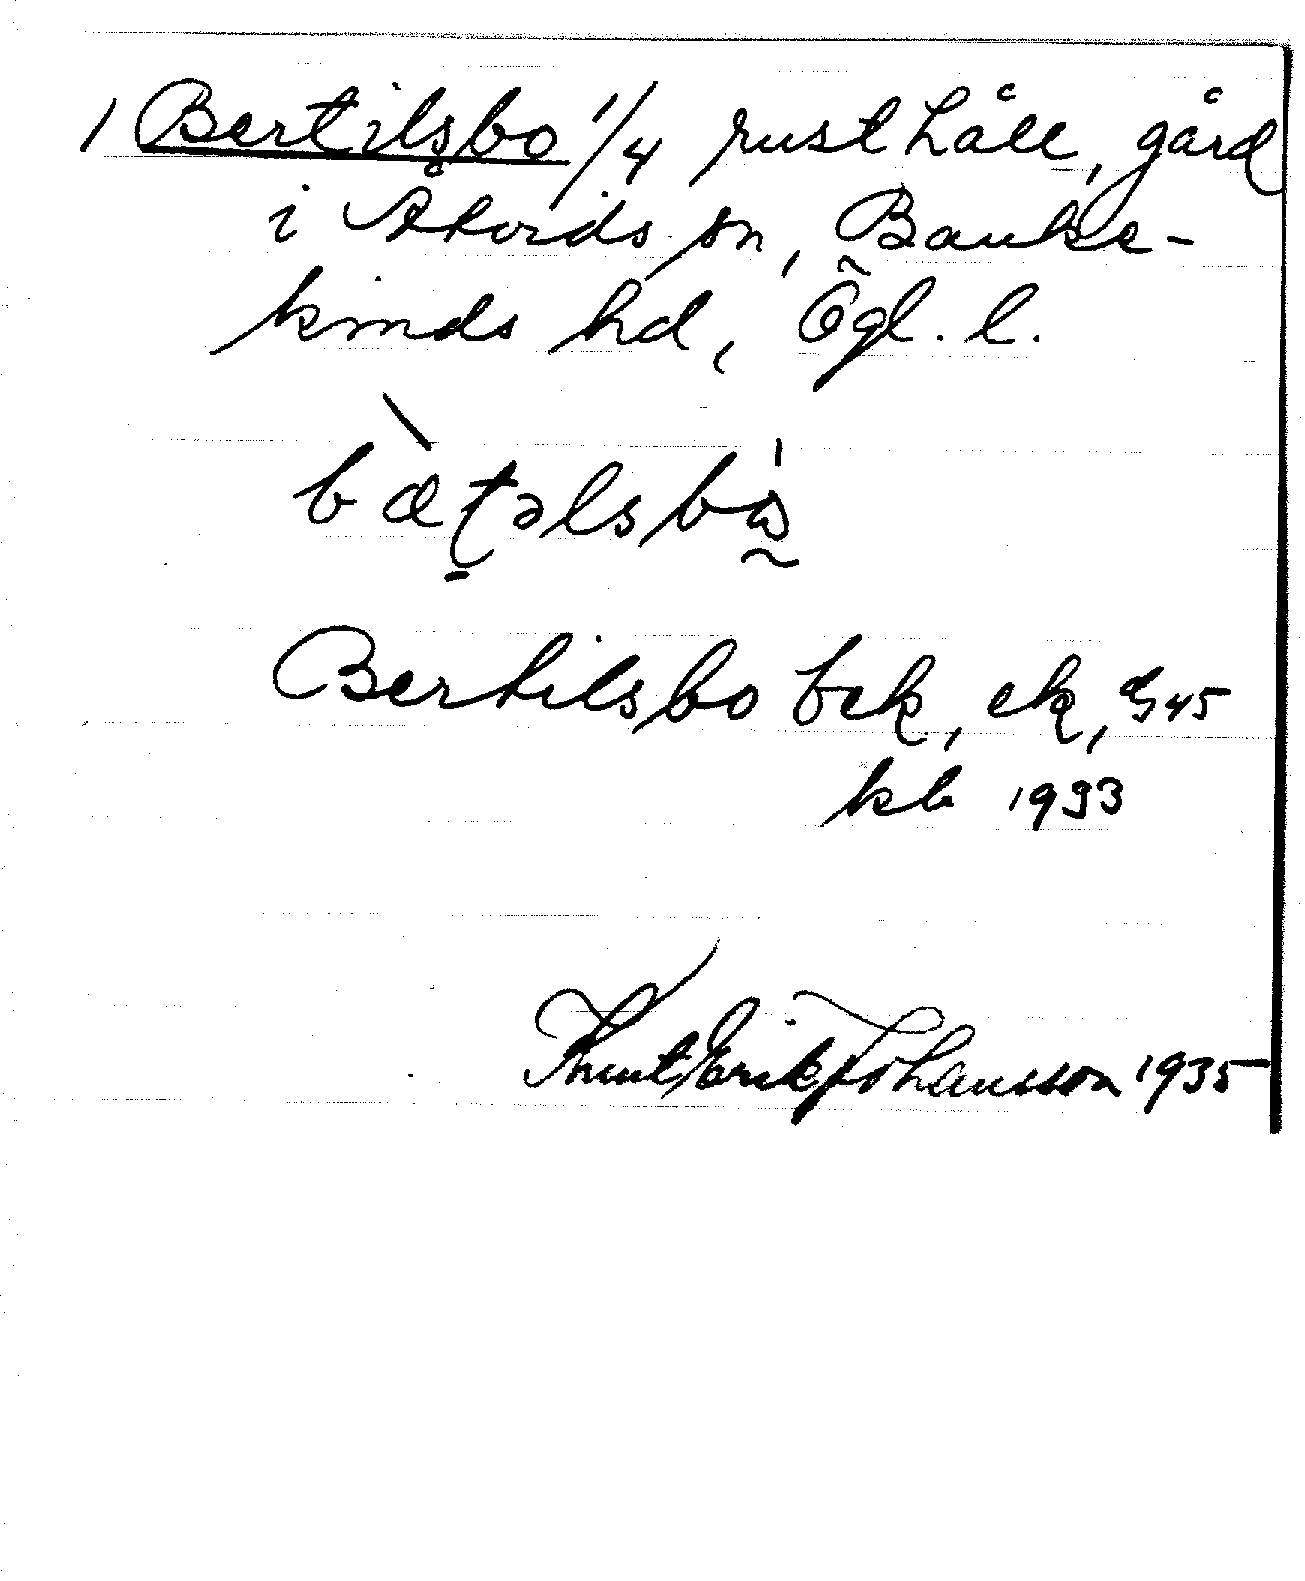 1 Bertilsbo 1/4 rusthåll, gård
i Åtvids sn, Banke-
kinds hd, Ögl. l.
bæ̀t̠əlsbὼ̰
Bertilsbo bek, ek, G45
kb 1933
Knut Erik Johansson 1935